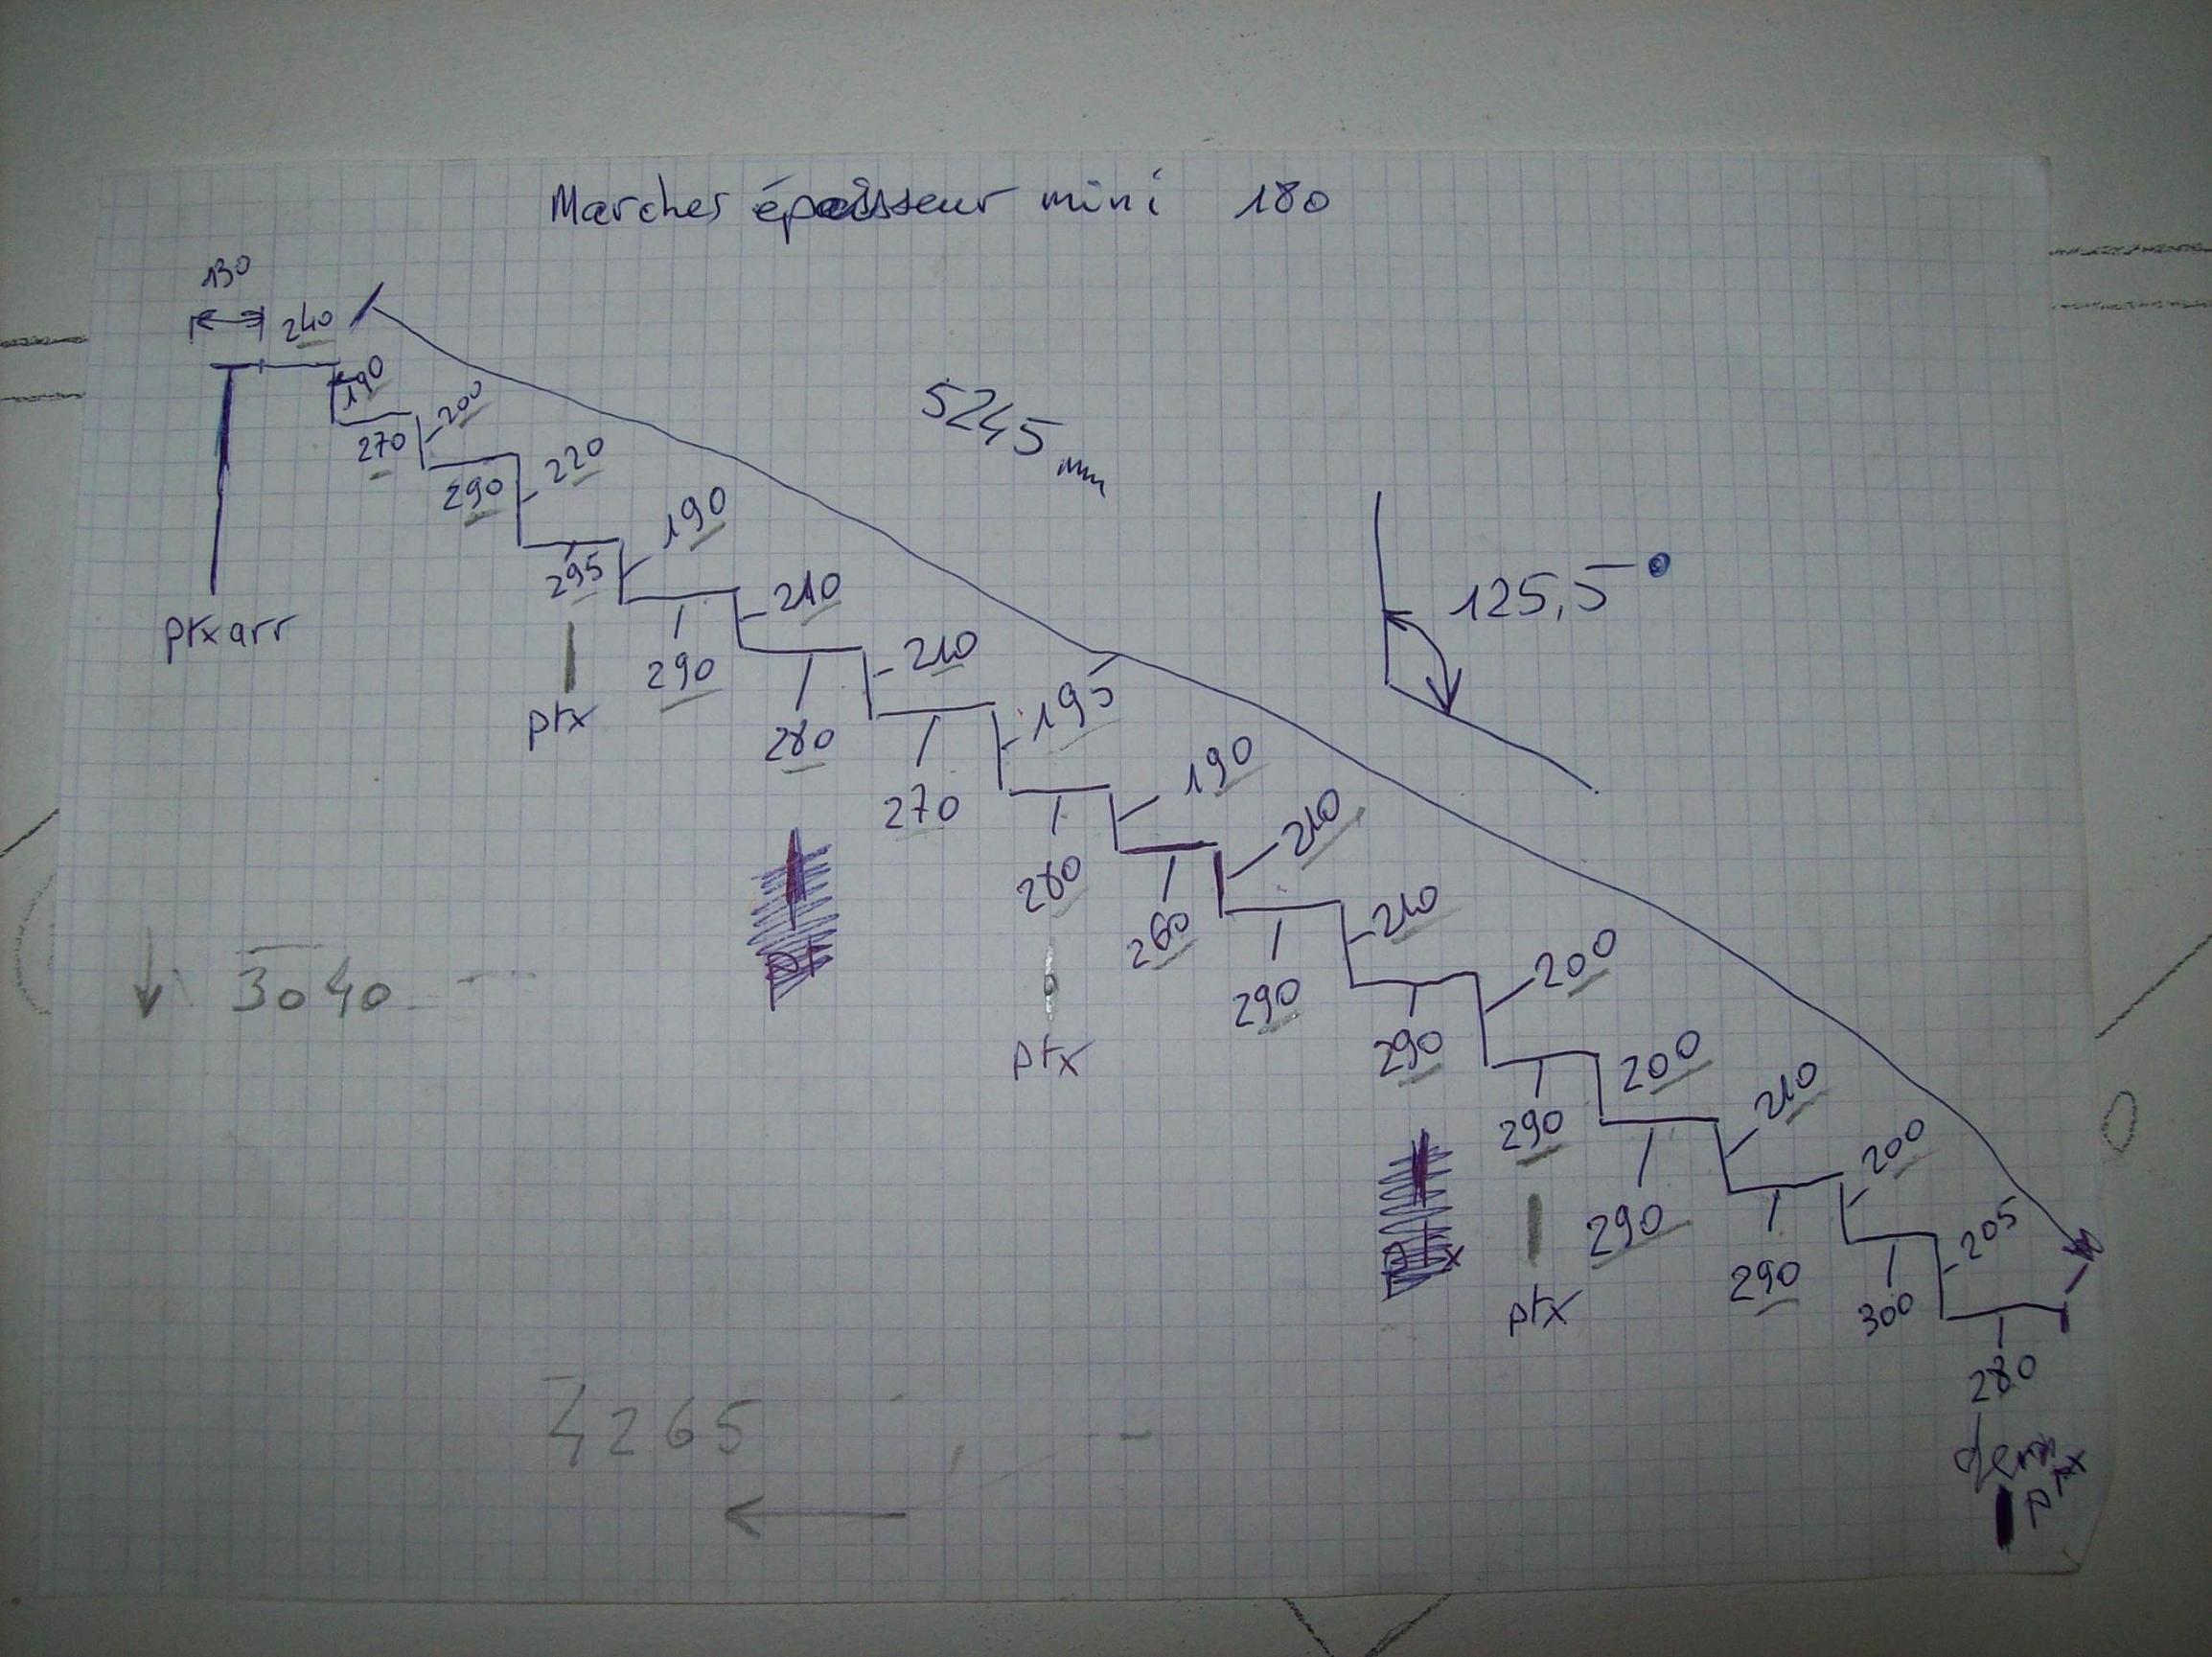 Marches épaisseur mini 180
130
240
190
270
200
290
220
5245 mm
ptx arr
295
190
ptx
290
210
280
210
270
195
125,5°
280
190
ptx
260
210
290
210
290
200
290
200
ptx
290
210
290
200
300
205
280
3040
4265